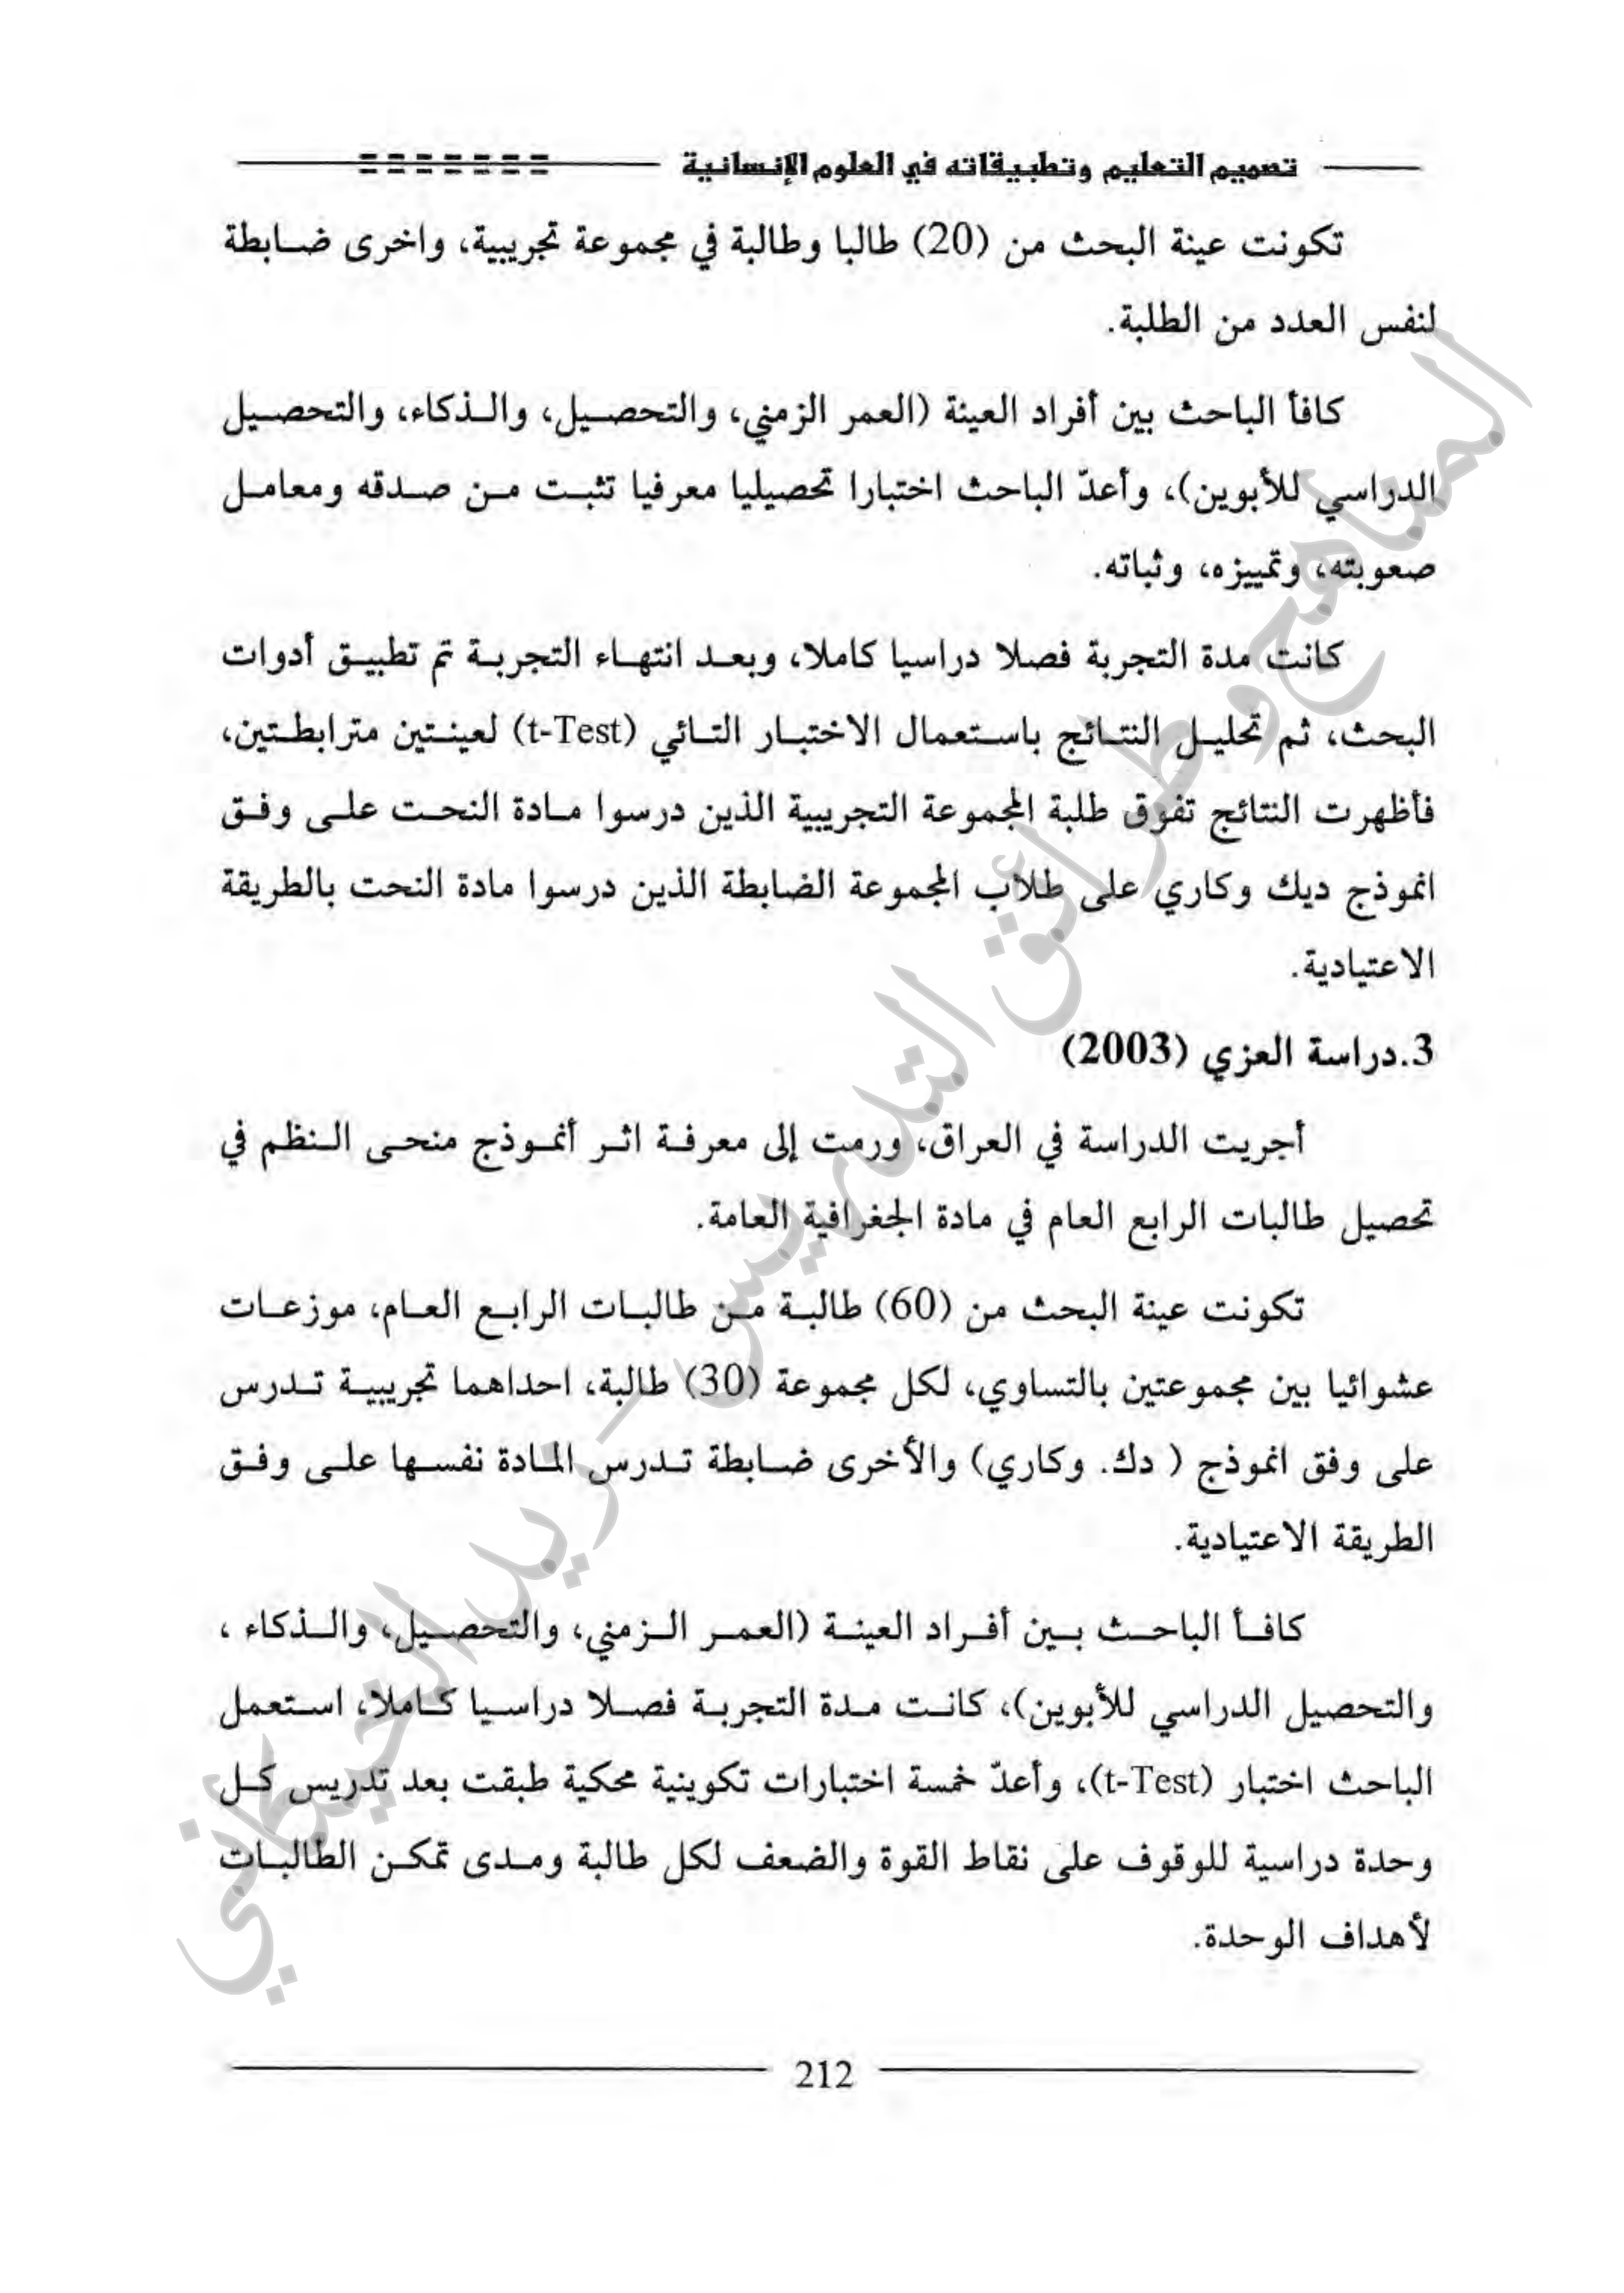 تصميم التعليم وتطبيقاته في العلوم الإنسانية
تكونت عينة البحث من (20) طالبا وطالبة في مجموعة تجريبية، واخرى ضابطة
لنفس العدد من الطلبة.
كافأ الباحث بين أفراد العينة (العمر الزمني، والتحصيل، والذكاء، والتحصيل
الدراسي للأبوين)، وأعدّ الباحث اختبارا تحصيليا معرفيا تثبت من صدقه ومعامل
صعوبته، وتمييزه، وثباته.
كانت مدة التجربة فصلا دراسيا كاملا، وبعد انتهاء التجربة تم تطبيق أدوات
البحث، ثم تحليل النتائج باستعمال الاختبار التائي (t-Test) لعينتين مترابطتين،
فأظهرت النتائج تفوق طلبة المجموعة التجريبية الذين درسوا مادة النحت على وفق
انموذج ديك وكاري على طلاب المجموعة الضابطة الذين درسوا مادة النحت بالطريقة
الاعتيادية.
3.دراسة العزي (2003)
أجريت الدراسة في العراق، ورمت إلى معرفة اثر أنموذج منحى النظم في
تحصيل طالبات الرابع العام في مادة الجغرافية العامة.
تكونت عينة البحث من (60) طالبة من طالبات الرابع العام، موزعات
عشوائيا بين مجموعتين بالتساوي، لكل مجموعة (30) طالبة، احداهما تجريبية تدرس
على وفق انموذج ( دك. وكاري) والأخرى ضابطة تدرس المادة نفسها على وفق
الطريقة الاعتيادية.
كافأ الباحث بين أفراد العينة (العمر الزمني، والتحصيل، والذكاء ،
والتحصيل الدراسي للأبوين)، كانت مدة التجربة فصلا دراسيا كاملا، استعمل
الباحث اختبار (t-Test)، وأعدّ خمسة اختبارات تكوينية محكية طبقت بعد تدريس كل
وحدة دراسية للوقوف على نقاط القوة والضعف لكل طالبة ومدى تمكن الطالبات
لأهداف الوحدة.
212
المناهج وطرائق التدريس - زيد الخيكاني